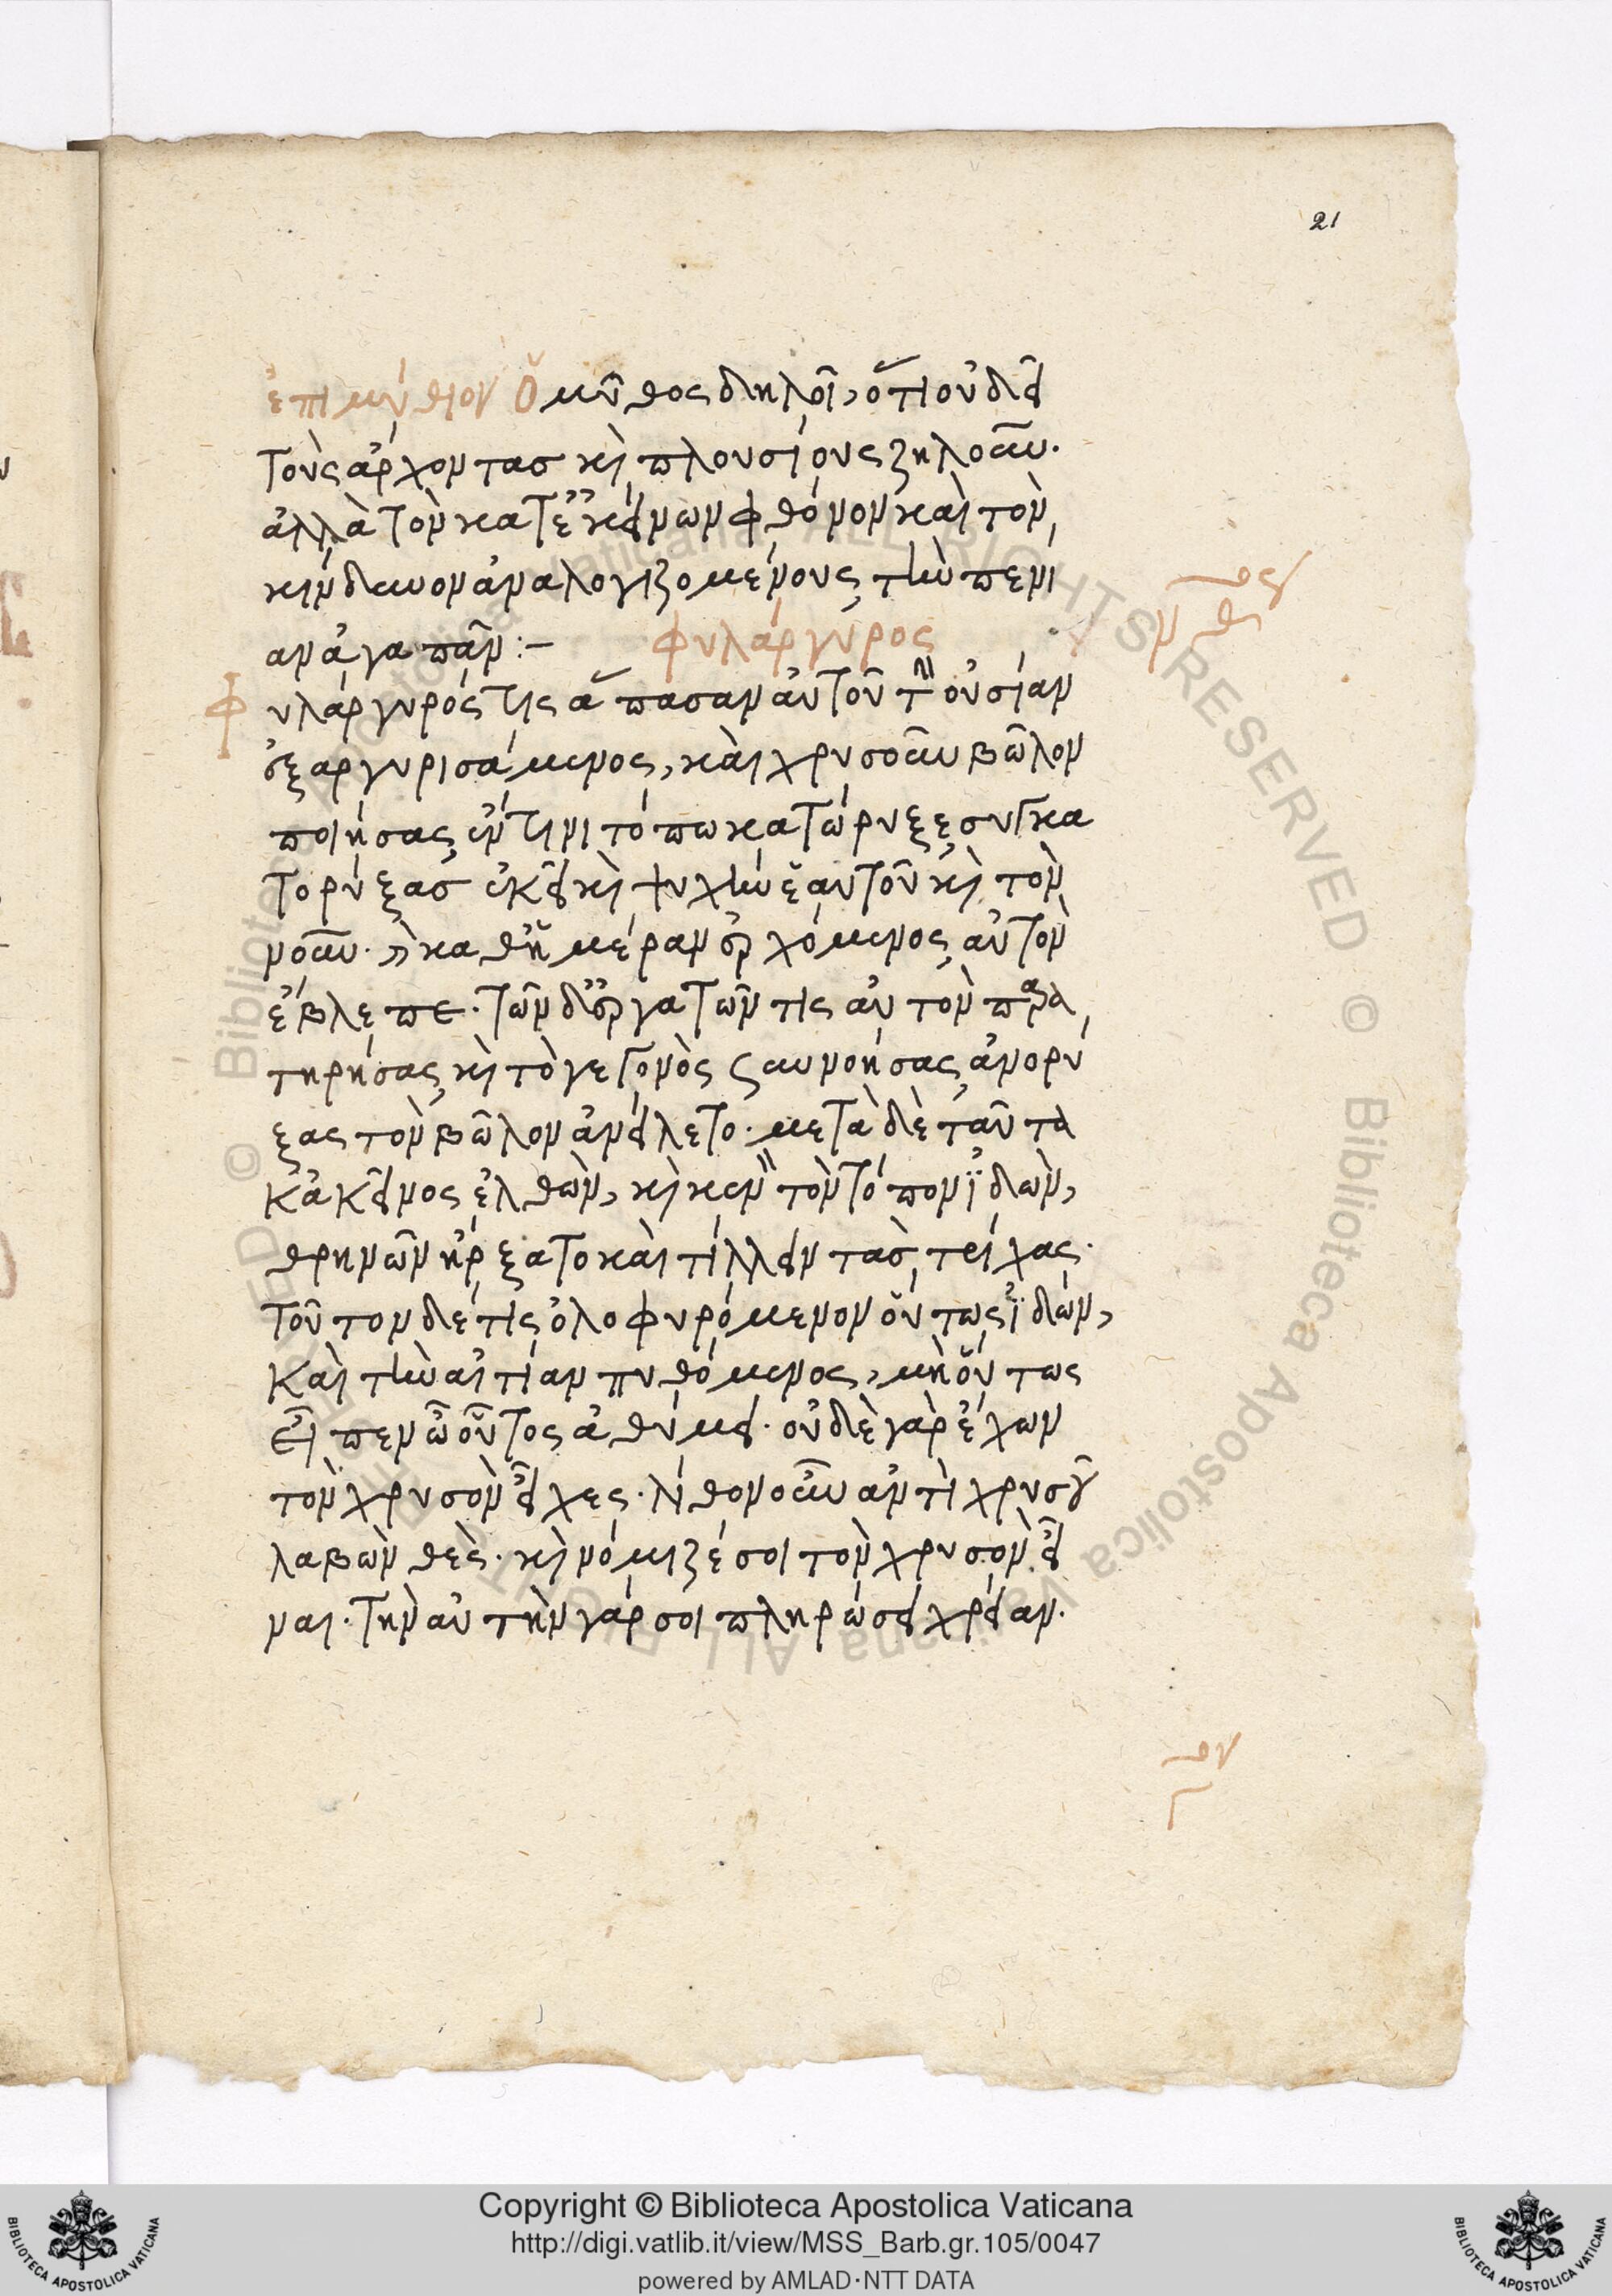 21
ἐπιμύθιον Ὁ μῦθος δηλοῖ, ὅτι οὐ δεῖ
τοὺς ἄρχοντας κὶ πλουσίους ζηλοῦν.
ἀλλὰ τὸν κατ' ἐκείνων φθόνον καὶ τὸν
κίνδυνον ἀναλογιζομένους τὴν πενί
αν ἀγαπᾶν :–
φυλάργυρος
Φυλάργυρός τις ἅπασαν αὐτοῦ τὴν οὐσίαν
ἐξαργυρισάμενος, καὶ χρυσοῦν βῶλον
ποιήσας ἔν τινι τόπω κατώρυξε συγκα
τορύξας ἐκεῖ κὶ ψυχὴν ἑαυτοῦ κὶ τὸν
νοῦν. κὶ καθ' ἡμέραν ἐρχόμενος αὐτὸν
ἔβλεπε. τῶν δ' ἐργατῶν τις αὐτὸν παρα
τηρήσας κὶ τὸ γεγονὸς συννοήσας ἀνορύ
ξας τὸν βῶλον ἀνείλετο. μετὰ δὲ ταῦτα
κἀκεῖνος ἐλθὼν, κὶ κενὸν τὸν τόπον ἰδὼν,
θρηνῶν ἤρξατο καὶ τίλλειν τὰς τρίχας.
τοῦτον δέ τις ὀλοφυρόμενον οὕτως ἰδών,
καὶ τὴν αἰτίαν πυθόμενος, μὴ οὕτως
εἶπεν ὦ οὗτος ἀθύμει. οὐδὲ γὰρ ἔχων
τὸν χρυσὸν εἶχες. λίθον οὖν ἀντὶ χρυσοῦ
λαβὼν θὲς. κὶ νόμιζέ σοι τὸν χρυσὸν εἶ
ναι. τὴν αὐτὴν γάρ σοι πληρώσει χρείαν.
Copyright © Biblioteca Apostolica Vaticana
http://digi.vatlib.it/view/MSS_Barb.gr.105/0047
powered by AMLAD·NTT DATA